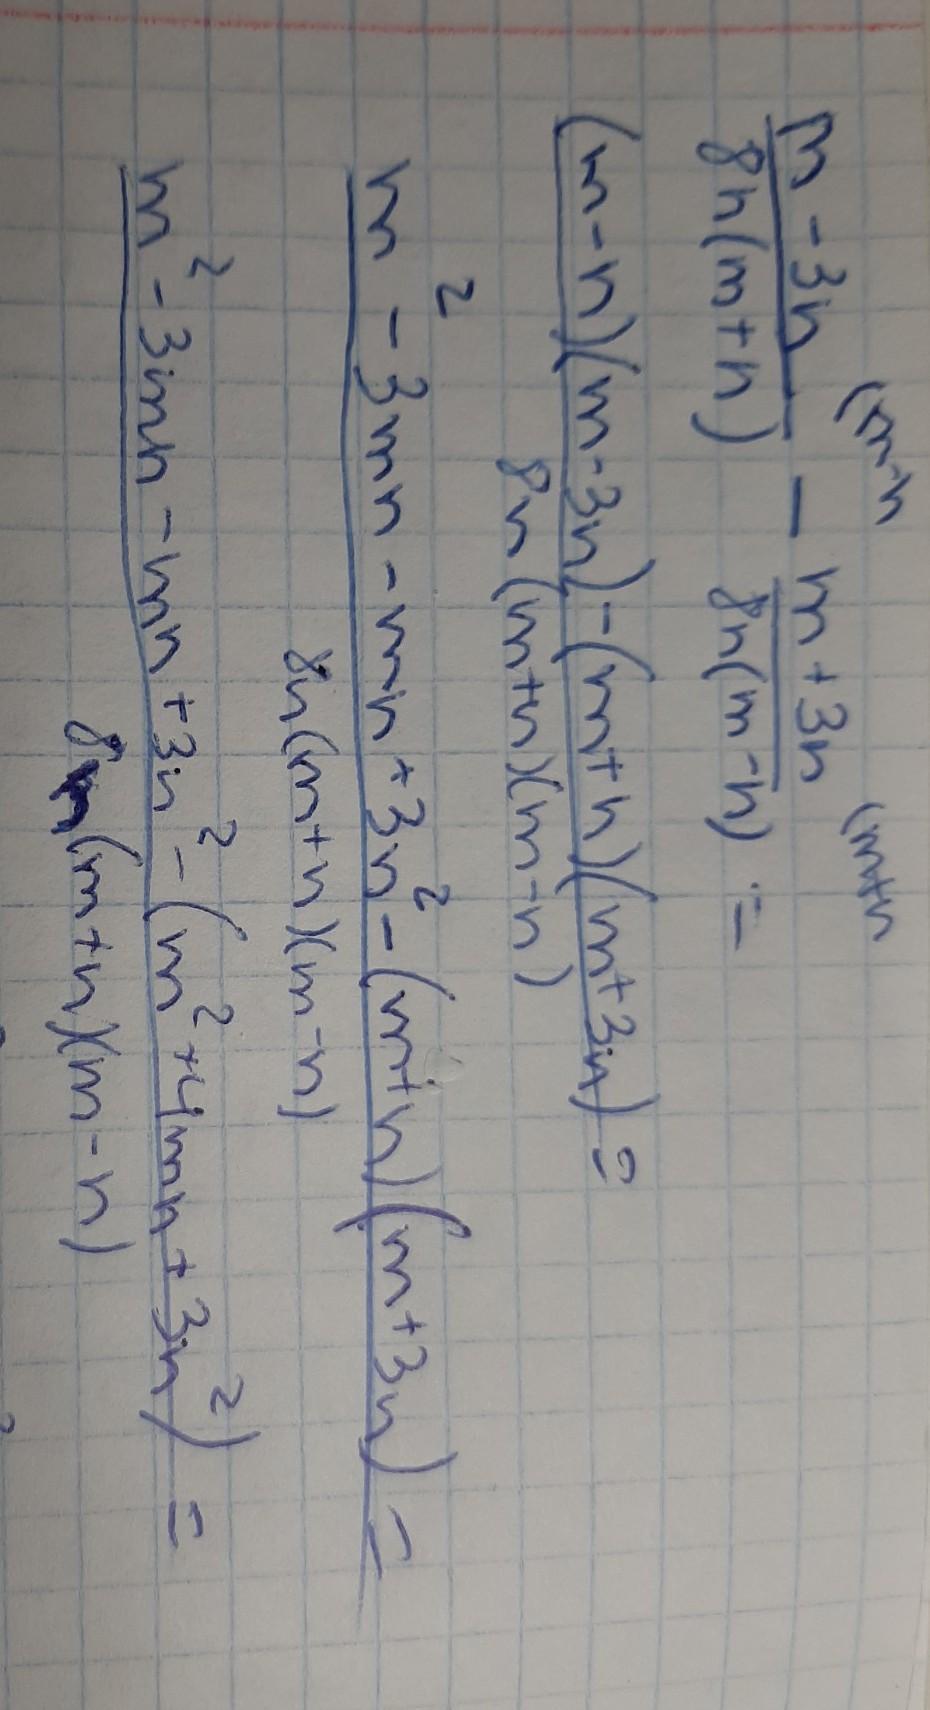 (m-n (m+n
m - 3n / 8n(m+n) - m + 3n / 8n(m-n) =
(m-n)(m-3n)-(m+n)(m+3n) =
8n(m+n)(m-n)
m² - 3mn - mn + 3n² - (m+n)(m+3n) =
8n(m+n)(m-n)
m² - 3mn - mn + 3n² - (m² + 4mn + 3n²) =
8n(m+n)(m-n)